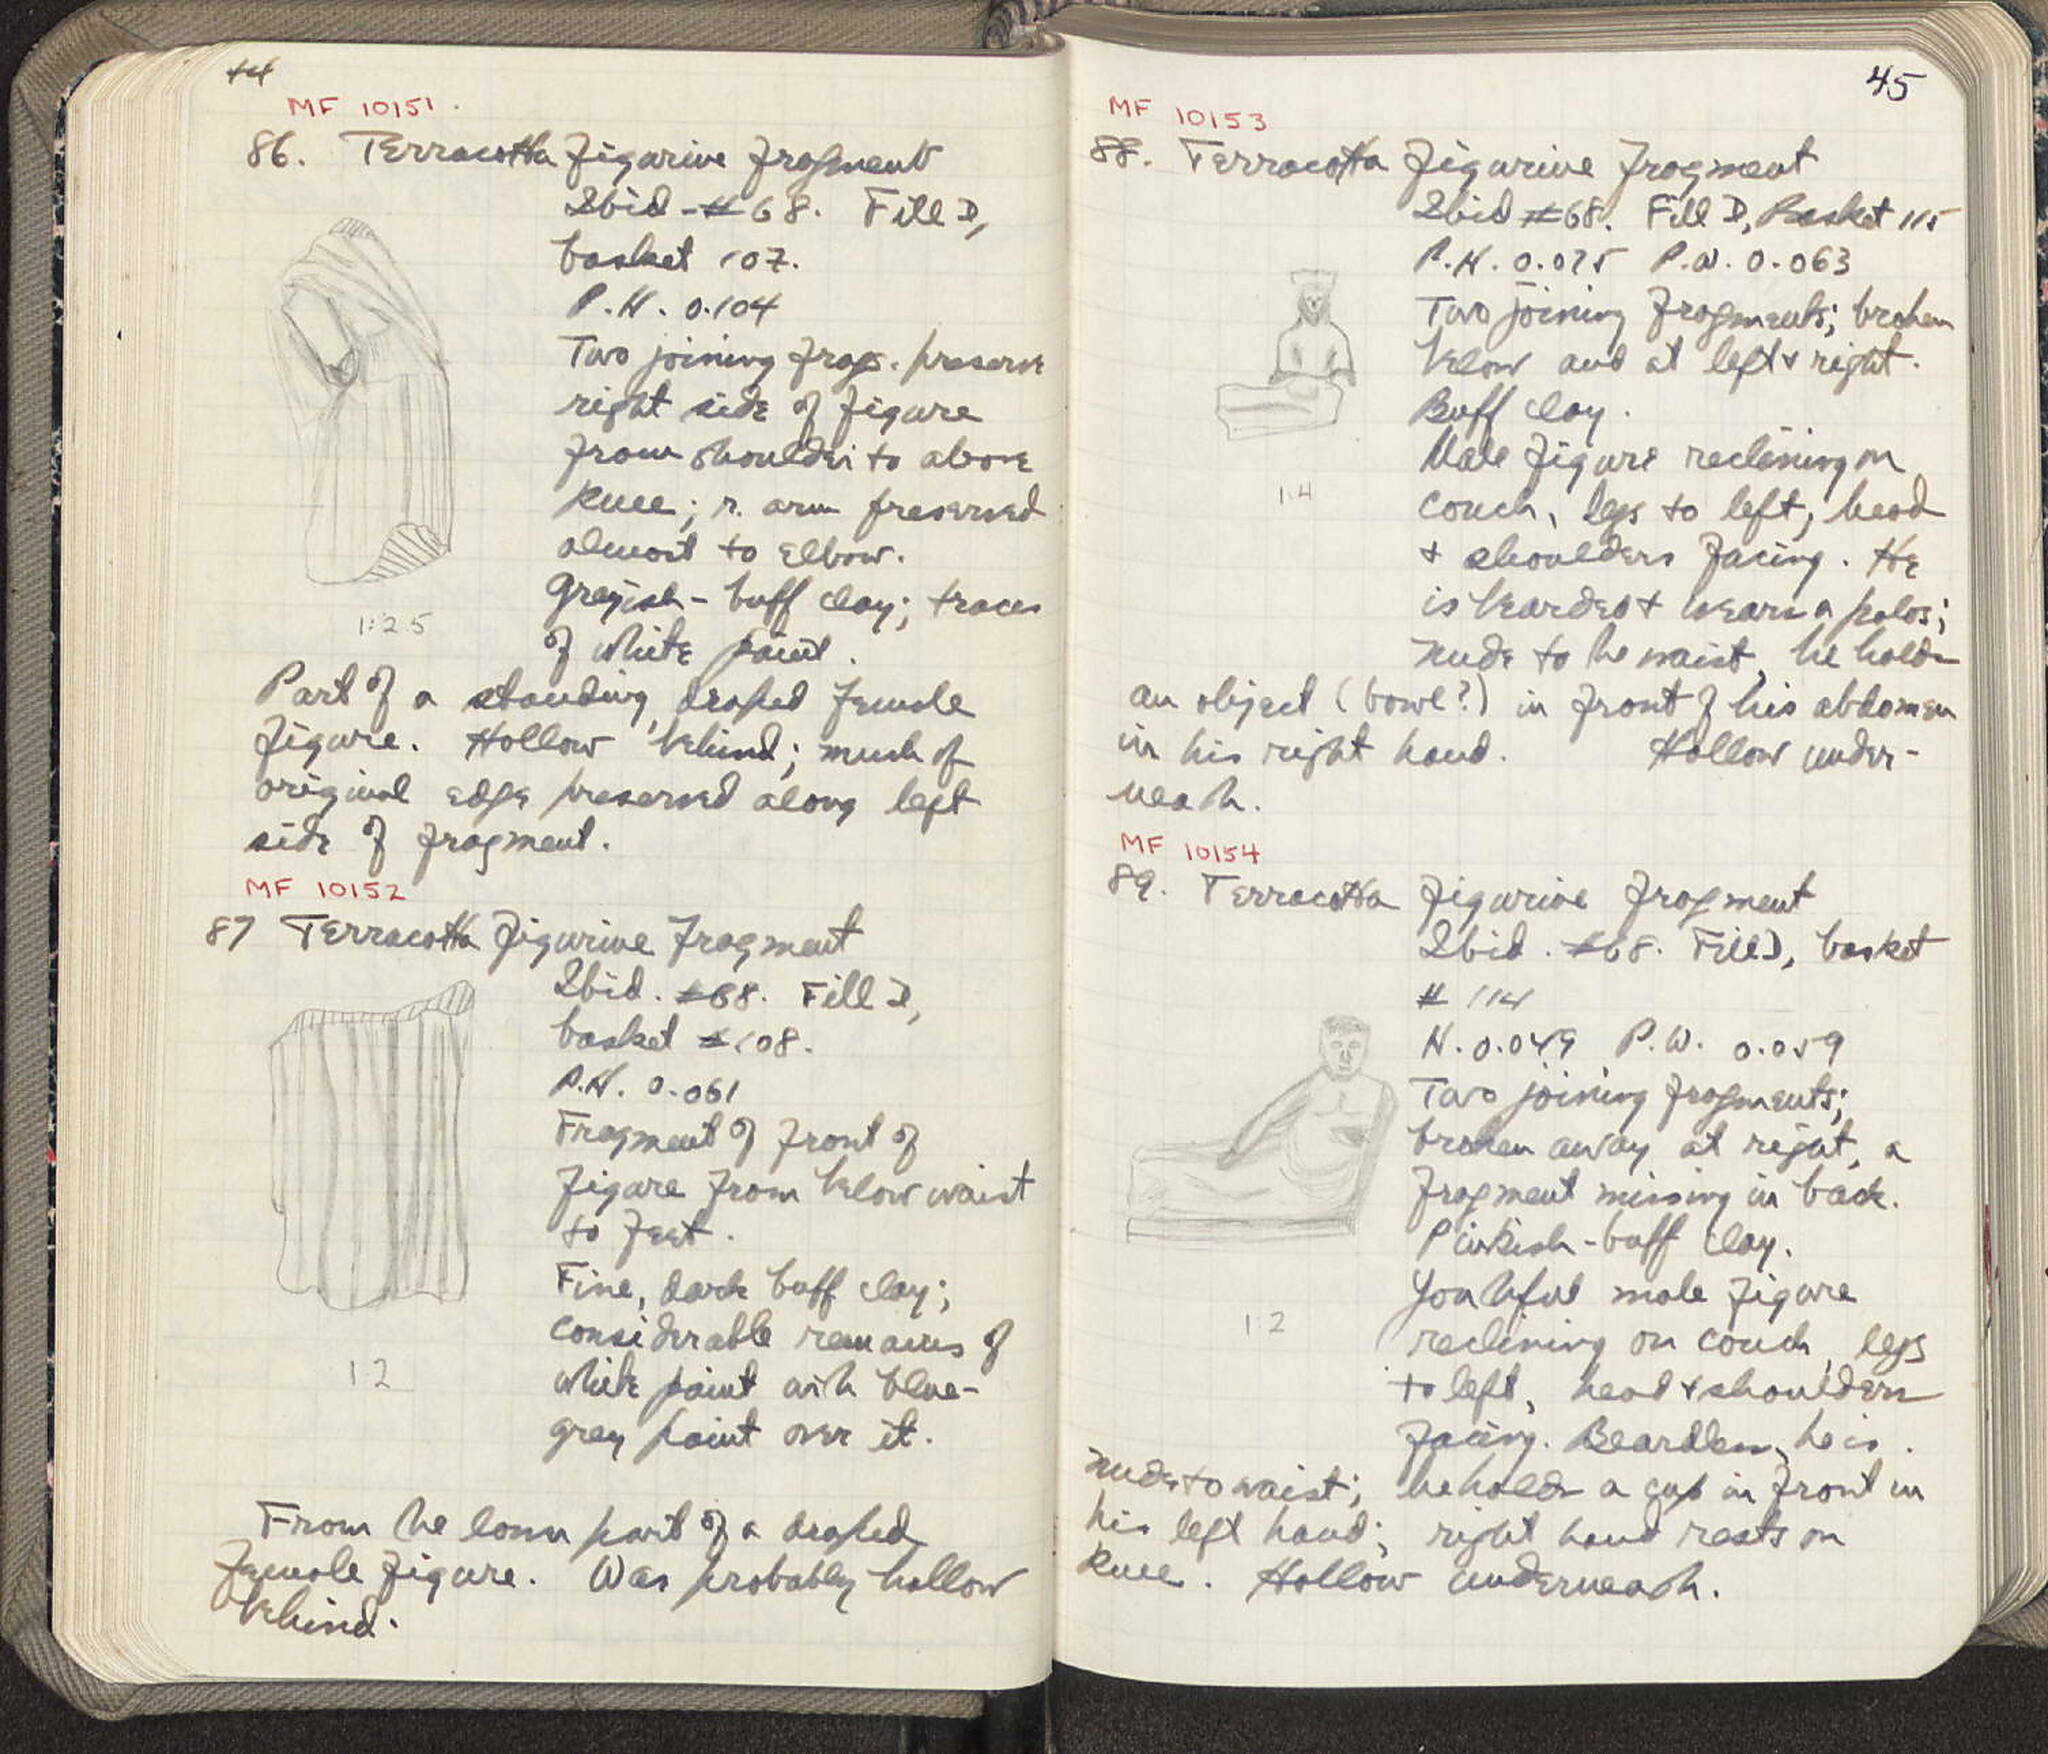 44
MF 10151.
86. Terracotta figurine fragment
Ibid - #68. Fill D,
basket 107.
P.H. 0.104
Two joining frags. preserve
right side of figure
from shoulder to above
knee; r. arm preserved
almost to elbow.
Greyish-buff clay; traces
of white paint.
1:2.5
Part of a standing, draped female
figure. Hollow behind; much of
original edge preserved along left
side of fragment.
MF 10152
87 Terracotta figurine fragment
Ibid. #68. Fill D,
basket #108.
P.H. 0.061
Fragment of front of
figure from below waist
to feet.
Fine, dark buff clay;
considerable remains of
white paint with blue-
grey paint over it.
1 2
From the lower part of a draped
female figure. Was probably hollow
behind.
45
MF 10153
88. Terracotta figurine fragment
Ibid #68. Fill D, Basket 115
P.H. 0.075 P.W. 0.063
Two joining fragments; broken
below and at left & right.
Buff clay.
Male figure reclining on
couch, legs to left, head
& shoulders facing. He
is bearded & wears a polos;
nude to the waist, he holds
1:4
an object (bowl?) in front of his abdomen
in his right hand. Hollow under-
neath.
MF 10154
89. Terracotta figurine fragment
Ibid. #68. Fill D, basket
# 114
H. 0.049 P.W. 0.059
Two joining fragments;
broken away at right, a
fragment missing in back.
Pinkish-buff clay.
Youthful male figure
reclining on couch, legs
to left, head & shoulders
facing. Beardless, he is
1 2
nude to waist; he holds a cup in front in
his left hand; right hand rests on
knee. Hollow underneath.